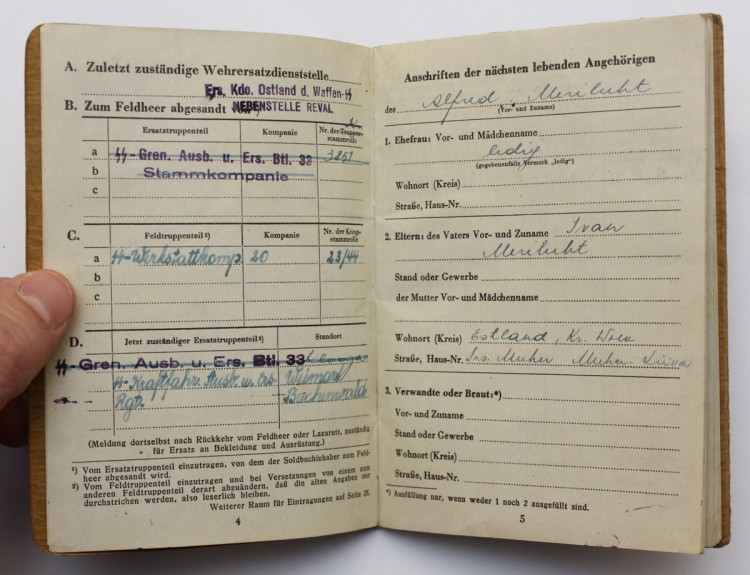 A. Zuletzt zuständige Wehrersatzdienststelle
Ers. Kdo. Ostland d. Waffen-SS
B. Zum Feldheer abgesandt von¹)
NEBENSTELLE REVAL
Ersatztruppenteil
Kompanie
Nr. der Truppen-
stammrolle
a
SS-Gren. Ausb. u. Ers. Btl. 33
3851
b
Stammkompanie
c
C.
Feldtruppenteil²)
Kompanie
Nr. der Kriegs-
stammrolle
a
SS-Werkstattkomp.
20
23/44
b
c
D.
Jetzt zuständiger Ersatztruppenteil²)
Standort
SS-Gren. Ausb. u. Ers. Btl. 33
SS-Kraftfahr. Ausb. u. Ers.
Rgt.
Weimar
Buchenwald
(Meldung dortselbst nach Rückkehr vom Feldheer oder Lazarett, zuständig
für Ersatz an Bekleidung und Ausrüstung.)
¹) Vom Ersatztruppenteil einzutragen, von dem der Soldbuchinhaber zum Feld-
heer abgesandt wird.
²) Vom Feldtruppenteil einzutragen und bei Versetzungen von einem zum
anderen Feldtruppenteil derart abzuändern, daß die alten Angaben nur
durchstrichen werden, also leserlich bleiben.
Weiterer Raum für Eintragungen auf Seite
4
Anschriften der nächsten lebenden Angehörigen
des Alfred
(Vor- und Zuname)
1. Ehefrau: Vor- und Mädchenname
ledig
(gegebenenfalls Vermerk „ledig“)
Wohnort (Kreis)
Straße, Haus-Nr.
2. Eltern: des Vaters Vor- und Zuname Ivan
Stand oder Gewerbe
der Mutter Vor- und Mädchenname
Wohnort (Kreis) Estland, Kr.
Straße, Haus-Nr.
3. Verwandte oder Braut:*)
Vor- und Zuname
Stand oder Gewerbe
Wohnort (Kreis)
Straße, Haus-Nr.
*) Ausfüllung nur, wenn weder 1 noch 2 ausgefüllt sind.
5